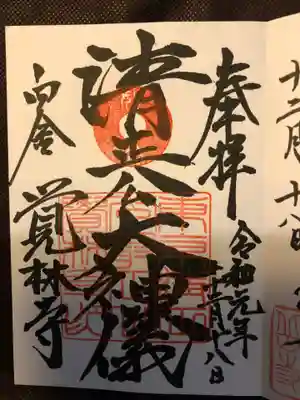 奉拝
令和元年
十二月十八日
清正公大神儀
白金
覚林寺
十二月十八日